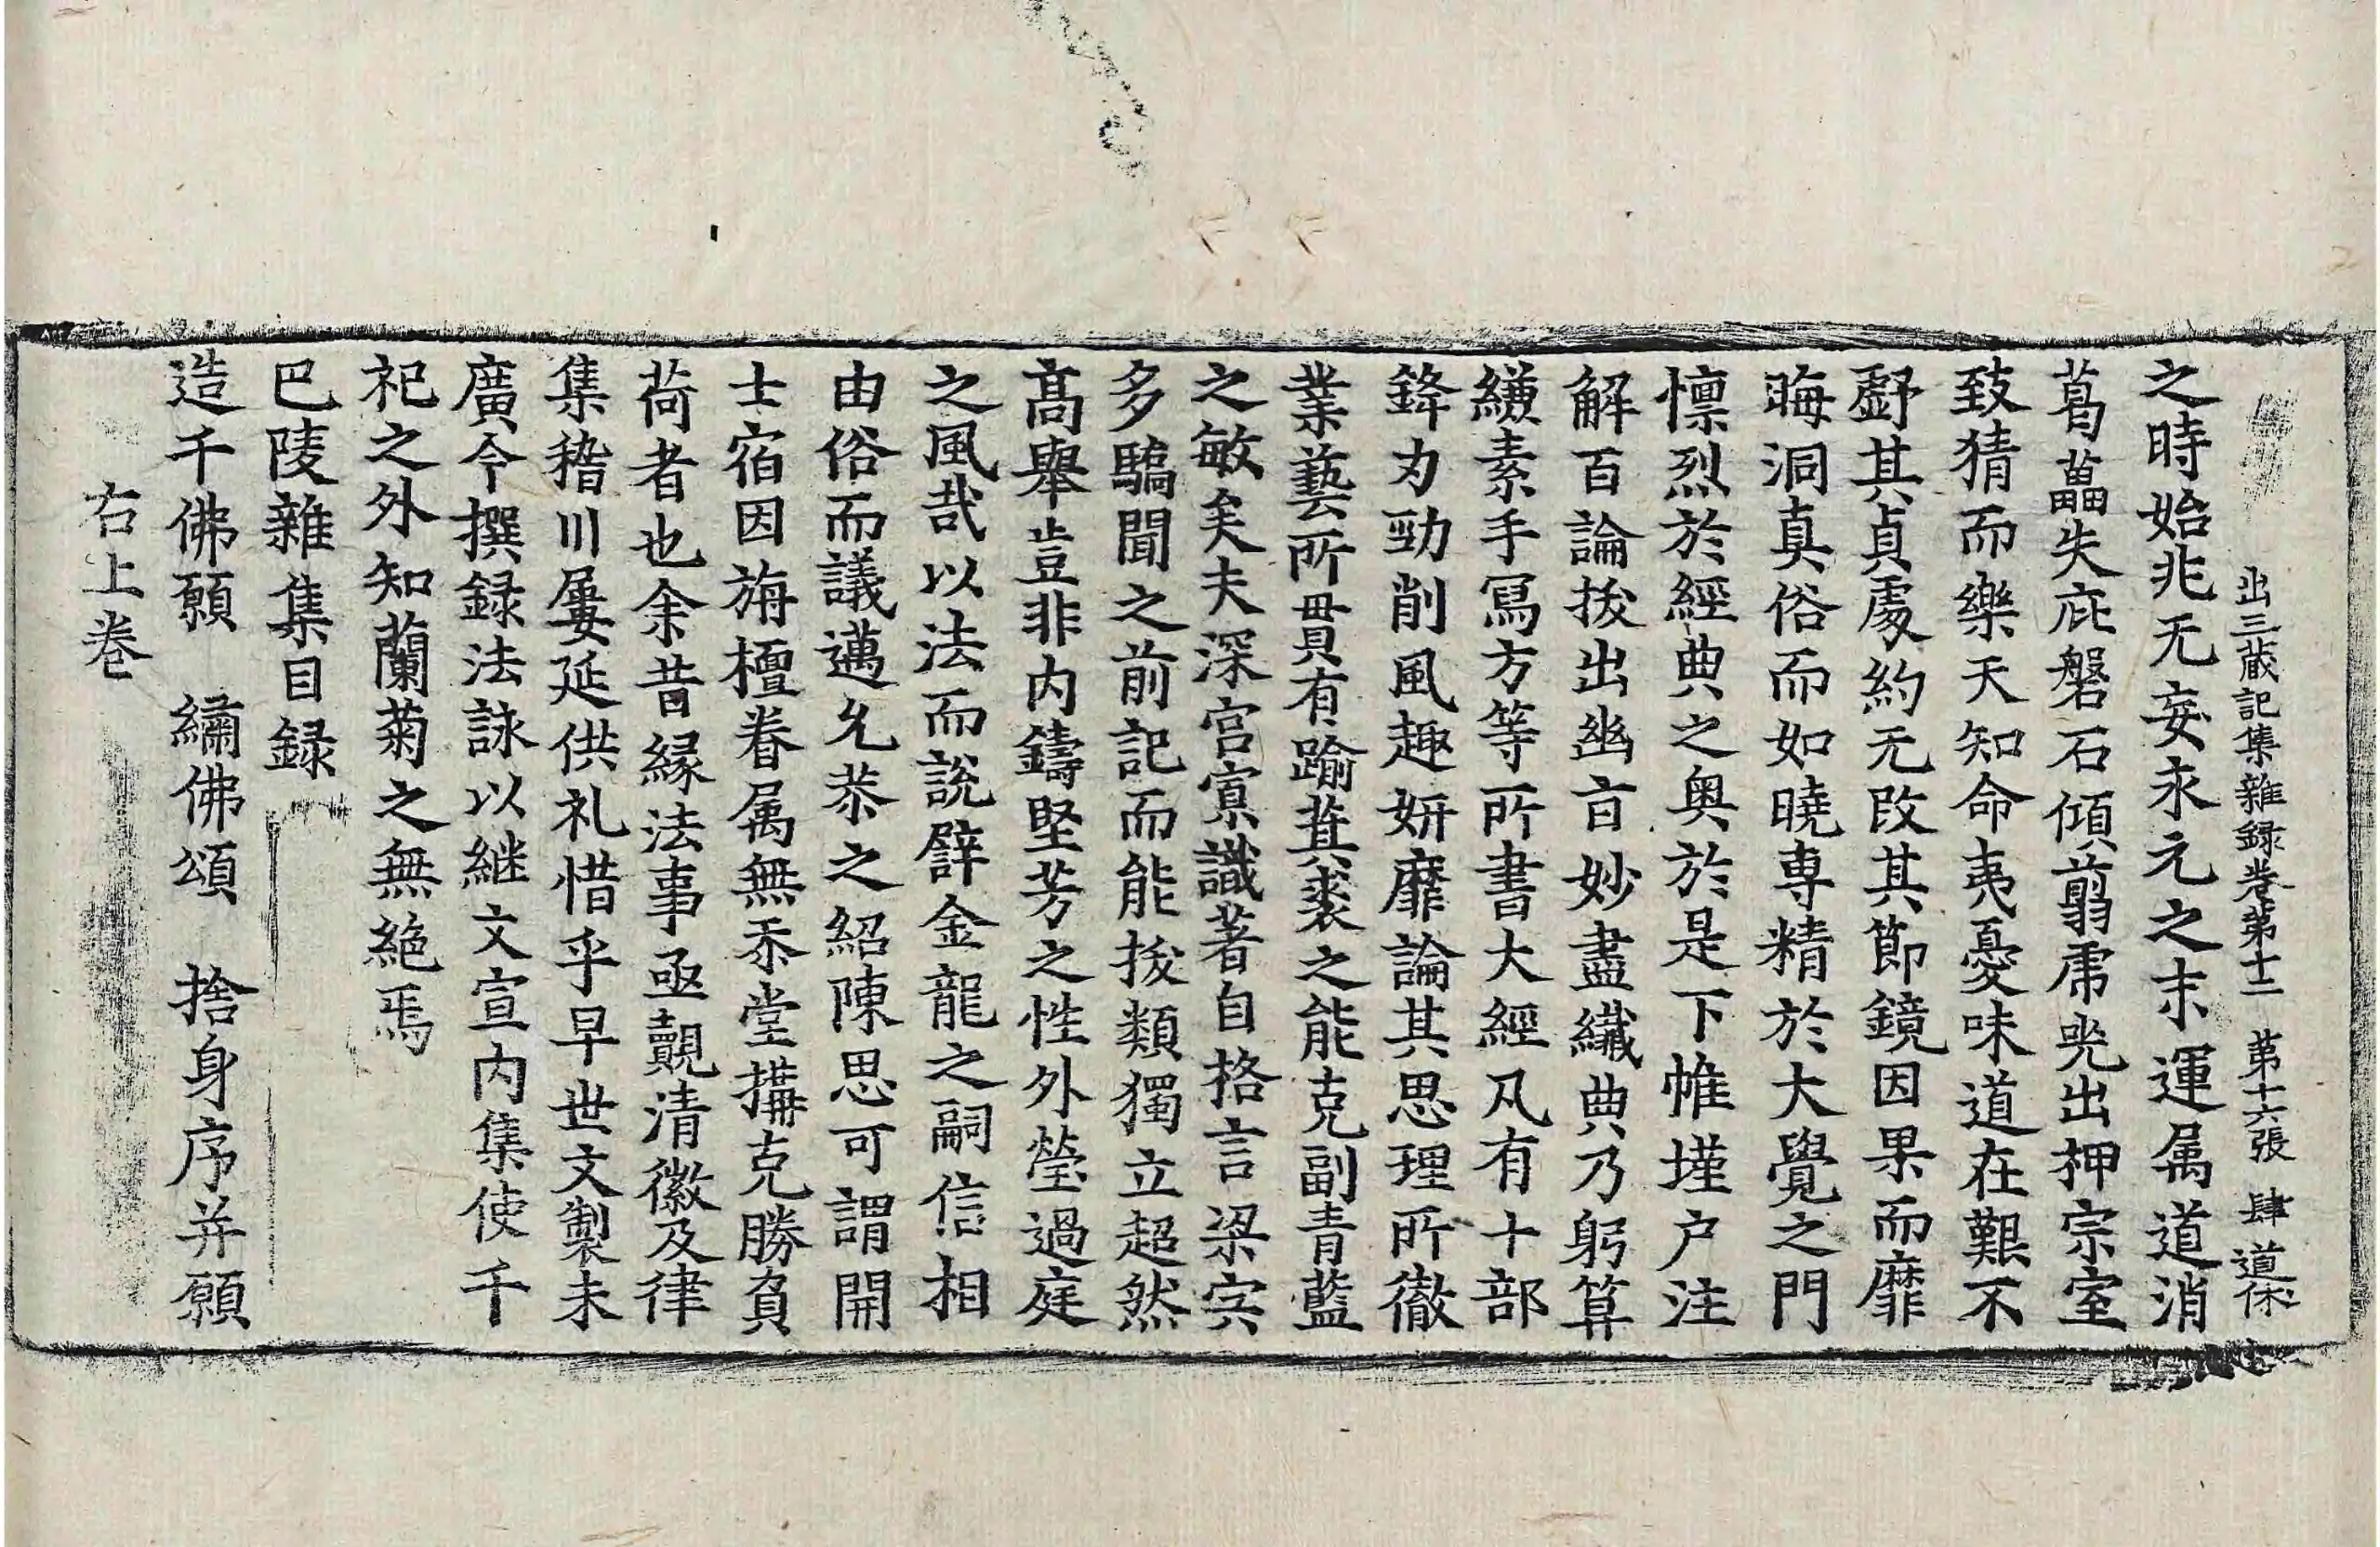 出三藏記集雜録卷第十二 第十六張 肆 道休
之時始兆无妄永元之末運属道消
葛藟失庇磐石傾翦虎兕出押宗室
致猜而樂天知命夷憂味道在艱不
虧其貞處約无改其節鏡因果而靡
晦洞真俗而如曉専精於大覺之門
懍烈於經典之奥於是下帷墐户注
解百論拔出幽㫖妙盡纎典乃躬算
縑素手寫方等所書大經凡有十部
鋒力勁削風趣妍靡論其思理所徹
業藝所貫有踰萁裘之能克副青藍
之敏矣夫深宫寡識著自格言梁宍
多驕聞之前記而能拔類獨立超然
髙舉豈非内鑄堅芳之性外瑩過庭
之風哉以法而說譬金龍之嗣信相
由俗而議邁允恭之紹陳思可謂開
士宿因旃檀眷属無忝堂搆克勝負
荷者也余昔緣法事亟覿清徽及律
集稽川屢延供礼惜乎早世文製未
廣今撰録法詠以継文宣内集使千
祀之外知蘭菊之無絶焉
巴陵雜集目録
造千佛願 繡佛頌 捨身序并願
右上卷